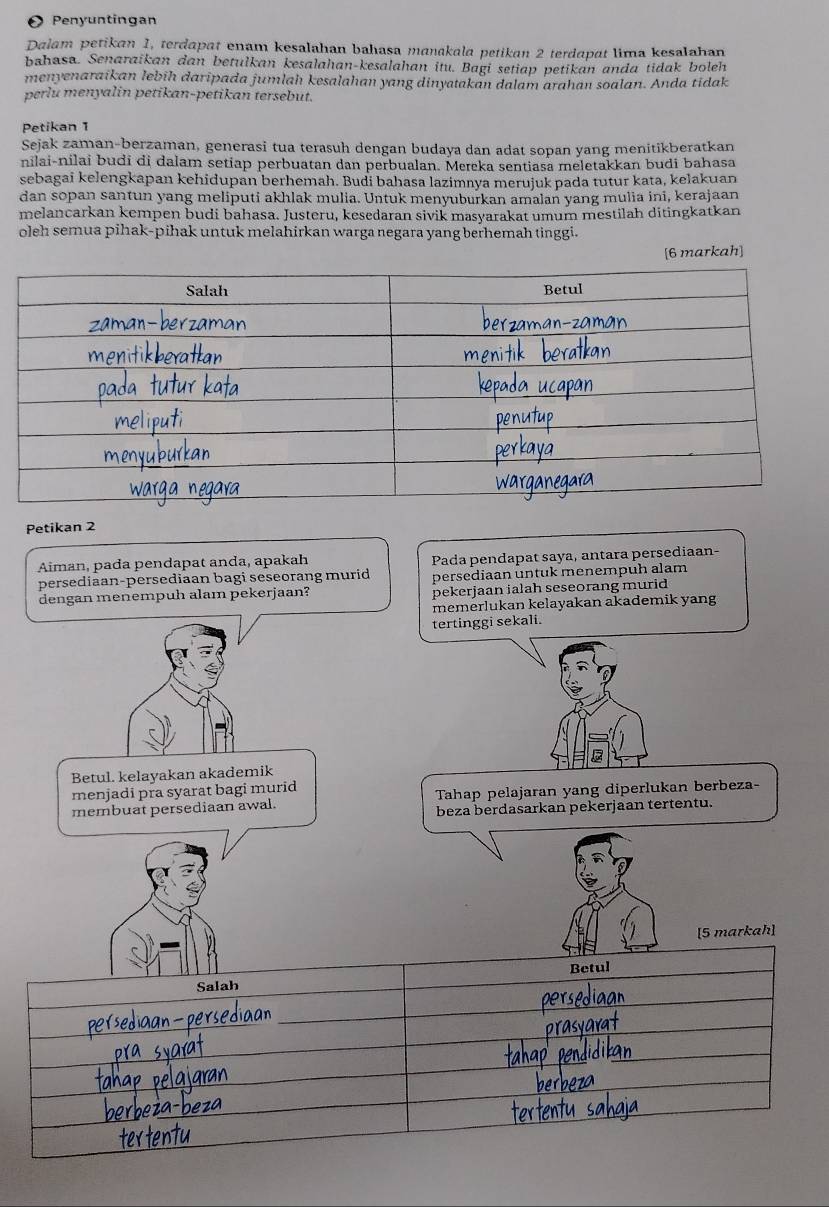 Penyuntingan
Dalam petikan 1, terdapat enam kesalahan bahasa manakala petikan 2 terdapat lima kesalahan
bahasa. Senaraikan dan betulkan kesalahan-kesalahan itu. Bagi setiap petikan anda tidak boleh
menyenaraikan lebih daripada jumlah kesalahan yang dinyatakan dalam arahan soalan. Anda tidak
perlu menyalin petikan-petikan tersebut.
Petikan 1
Sejak zaman-berzaman, generasi tua terasuh dengan budaya dan adat sopan yang menitikberatkan
nilai-nilai budi di dalam setiap perbuatan dan perbualan. Mereka sentiasa meletakkan budi bahasa
sebagai kelengkapan kehidupan berhemah. Budi bahasa lazimnya merujuk pada tutur kata, kelakuan
dan sopan santun yang meliputi akhlak mulia. Untuk menyuburkan amalan yang mulia ini, kerajaan
melancarkan kempen budi bahasa. Justeru, kesedaran sivik masyarakat umum mestilah ditingkatkan
oleh semua pihak-pihak untuk melahirkan warga negara yang berhemah tinggi.
[6 markah]
Salah Betul
zaman-berzaman berzaman-zaman
menitikberatkan menitik beratkan
pada tutur kata kepada ucapan
meliputi penutup
menyuburkan perkaya
warga negara warganegara
Petikan 2
Aiman, pada pendapat anda, apakah
persediaan-persediaan bagi seseorang murid
dengan menempuh alam pekerjaan?
Pada pendapat saya, antara persediaan-
persediaan untuk menempuh alam
pekerjaan ialah seseorang murid
memerlukan kelayakan akademik yang
tertinggi sekali.
Betul. kelayakan akademik
menjadi pra syarat bagi murid
membuat persediaan awal.
Tahap pelajaran yang diperlukan berbeza-
beza berdasarkan pekerjaan tertentu.
[5 markah]
Salah Betul
persediaan-persediaan persediaan
pra syarat prasyarat
tahap pelajaran tahap pendidikan
berbeza-beza berbeza
tertentu tertentu sahaja